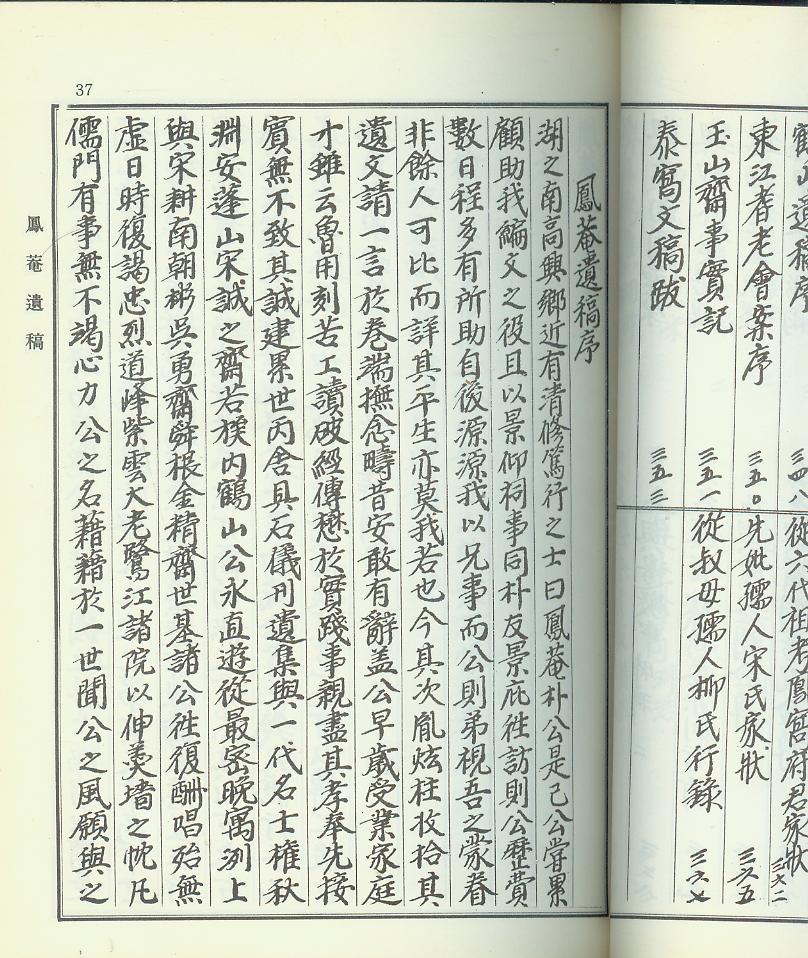 東江耆老會案序 三五〇
玉山齋事實記 三五一
泰窩文稿跋 三五三
從六代祖老鳳宮府君家狀 三六二
先妣孺人宋氏家狀 三六五
從叔母孺人柳氏行錄 三六七
37
鳳菴遺稿
鳳菴遺稿序
湖之南高興鄕近有清修篤行之士曰鳳菴朴公是已公嘗累
顧助我編文之役且以景仰祠事同朴友景庇徃訪則公歷費
數日程多有所助自後源源我以兄事而公則弟視吾之蒙眷
非餘人可比而詳其平生亦莫我若也今其次胤炫柱收拾其
遺文請一言於卷端撫念疇昔安敢有辭盖公早歲受業家庭
才雖云魯用刻苦工讀破經傳懋於實踐事親盡其孝奉先接
賓無不致其誠建累世丙舍具石儀刊遺集與一代名士權秋
淵安蓬山宋誠之齋若族內鶴山公永直遊從最密晚寓洌上
與宋耕南朝彬吳勇齋舜根金精齋世基諸公徃復酬唱殆無
虛日時復謁忠烈道峰紫雲大老鷺江諸院以伸羹墻之忱凡
儒門有事無不竭心力公之名藉藉於一世聞公之風願與之